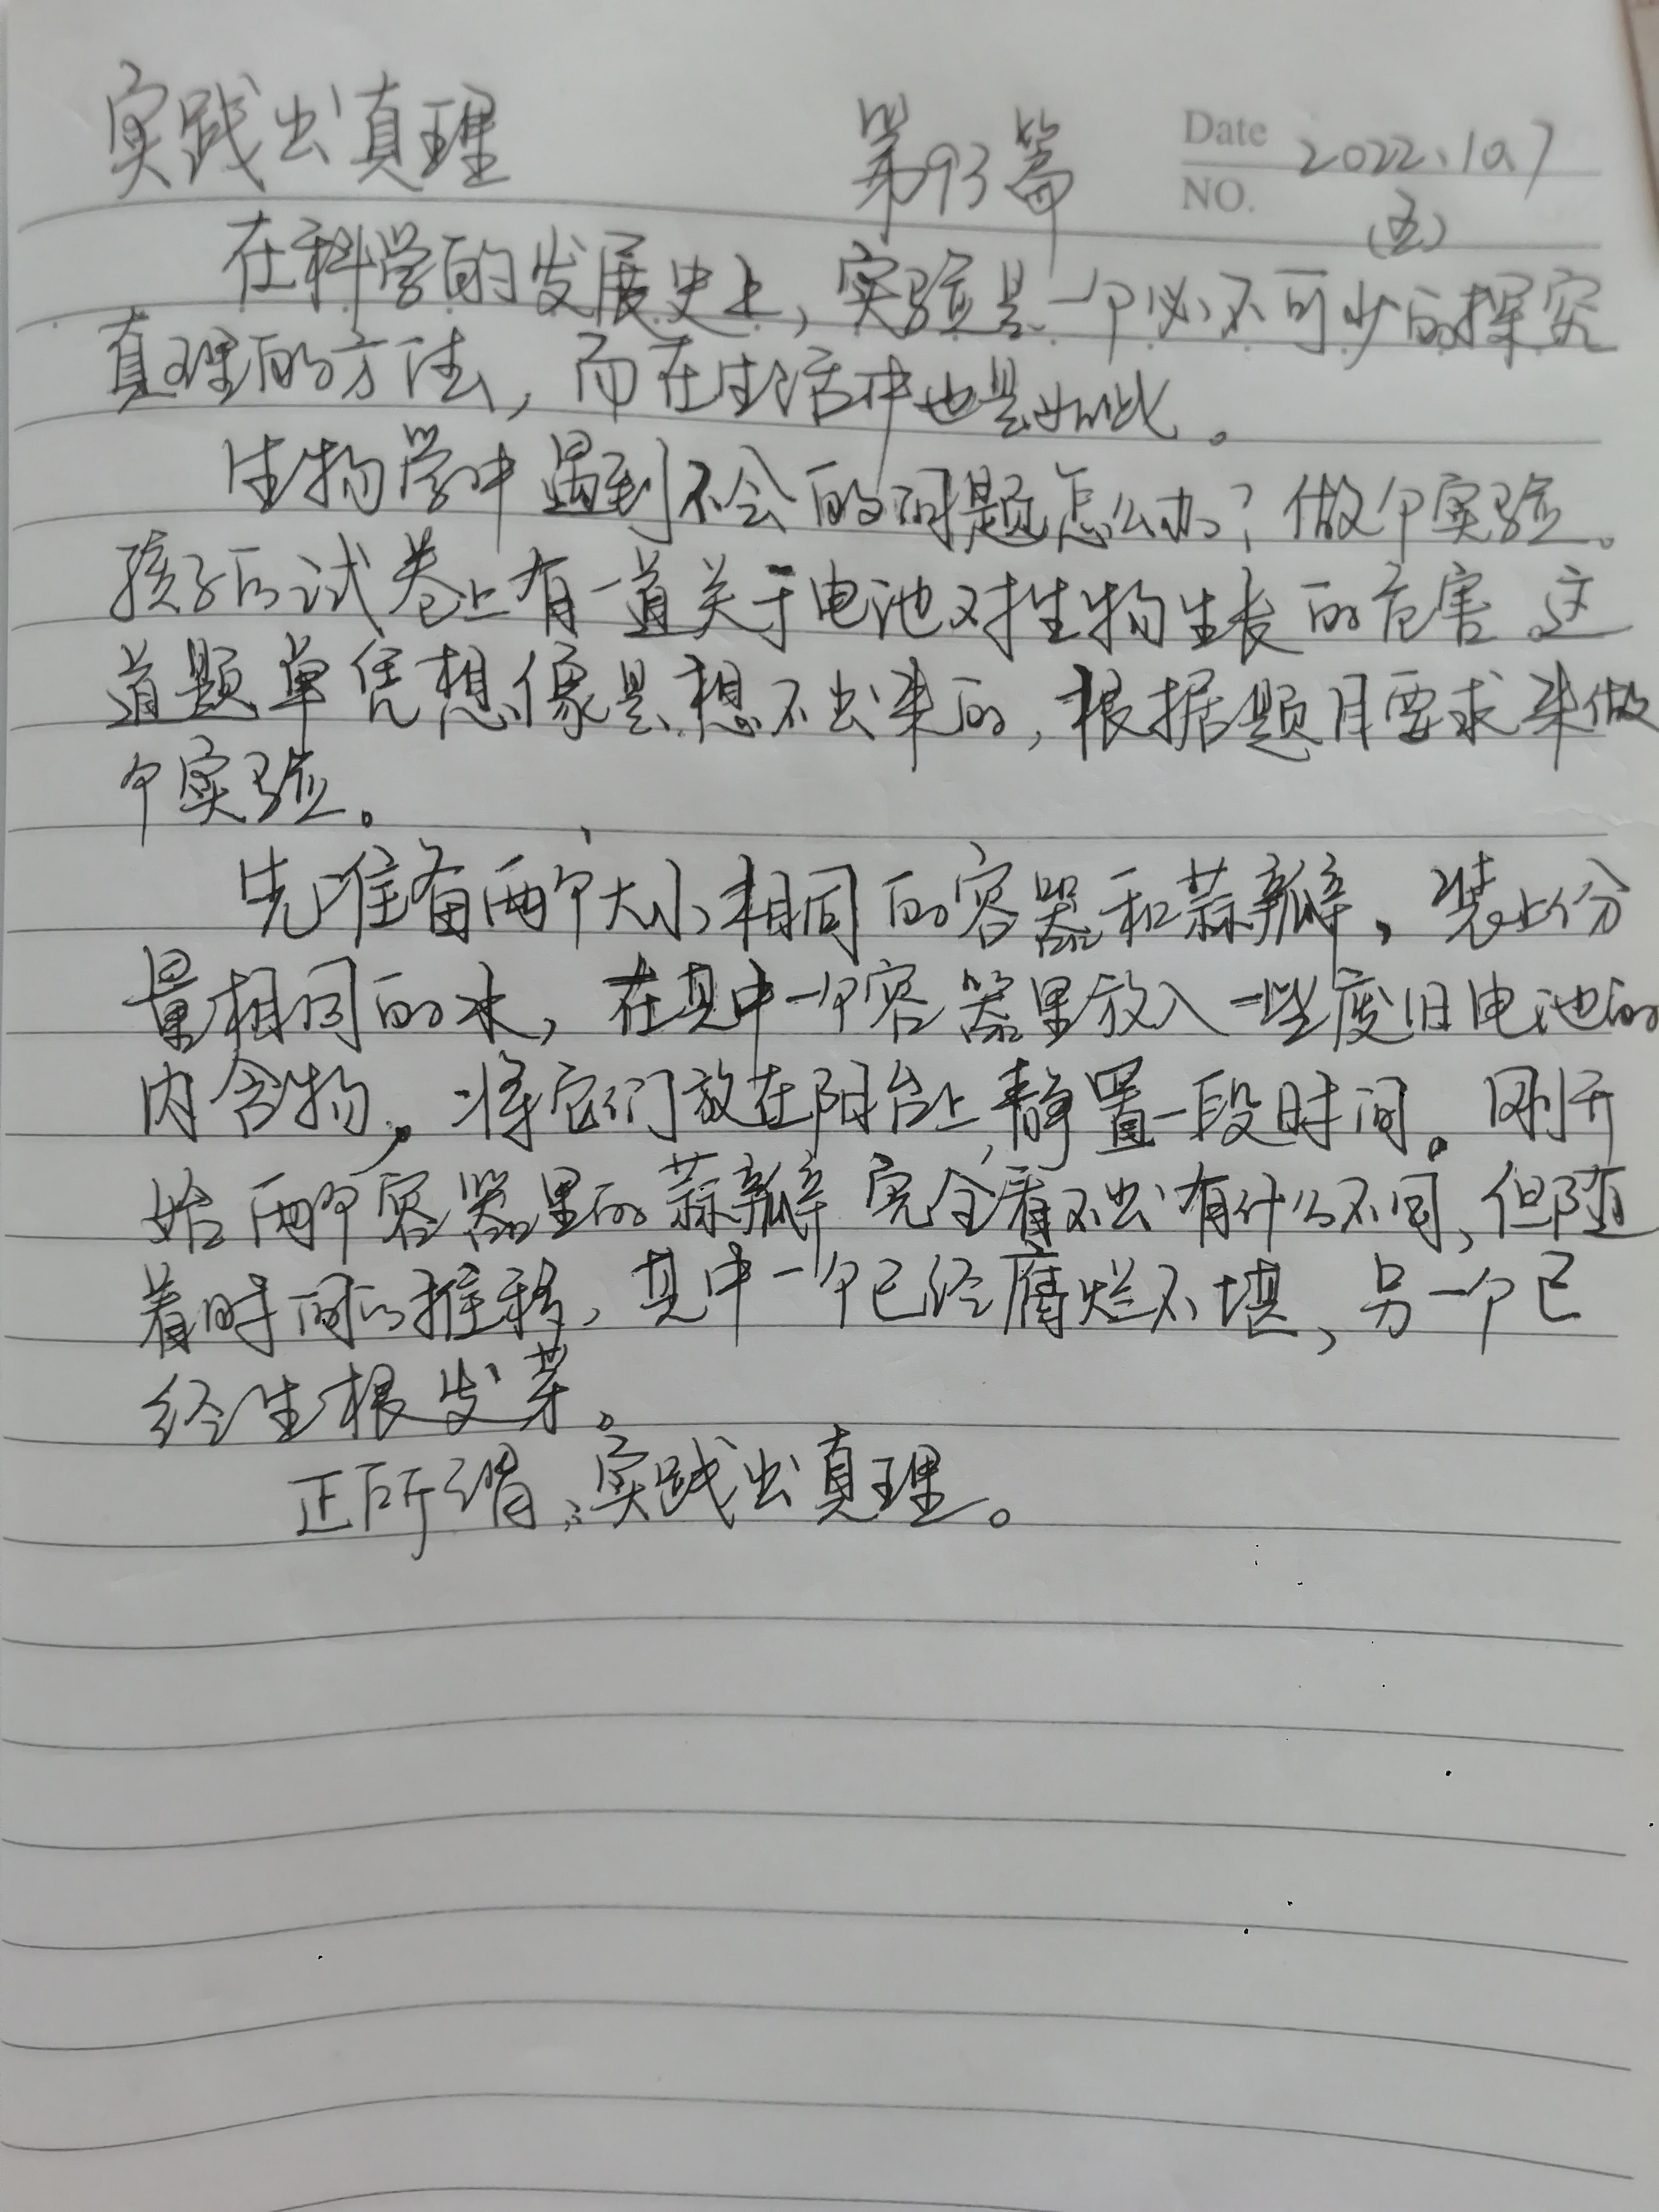 实践出真理 第93篇 Date 2022.10.7
NO. (五)
在科学的发展史上，实验是一个必不可少的探究
真理的方法，而在生活中也是如此。
生物学中遇到不会的问题怎么办？做个实验。
孩子的试卷上有一道关于电池对生物生长的危害，这
道题单凭想像是想不出来的，根据题目要求来做
个实验。
先准备两个大小相同的容器和蒜瓣，装上份
量相同的水，在其中一个容器里放入一些废旧电池的
内含物，将它们放在阳台上，静置一段时间。刚开
始两个容器里的蒜瓣完全看不出有什么不同，但随
着时间的推移，其中一个已经腐烂不堪，另一个已
经生根发芽。
正所谓：实践出真理。